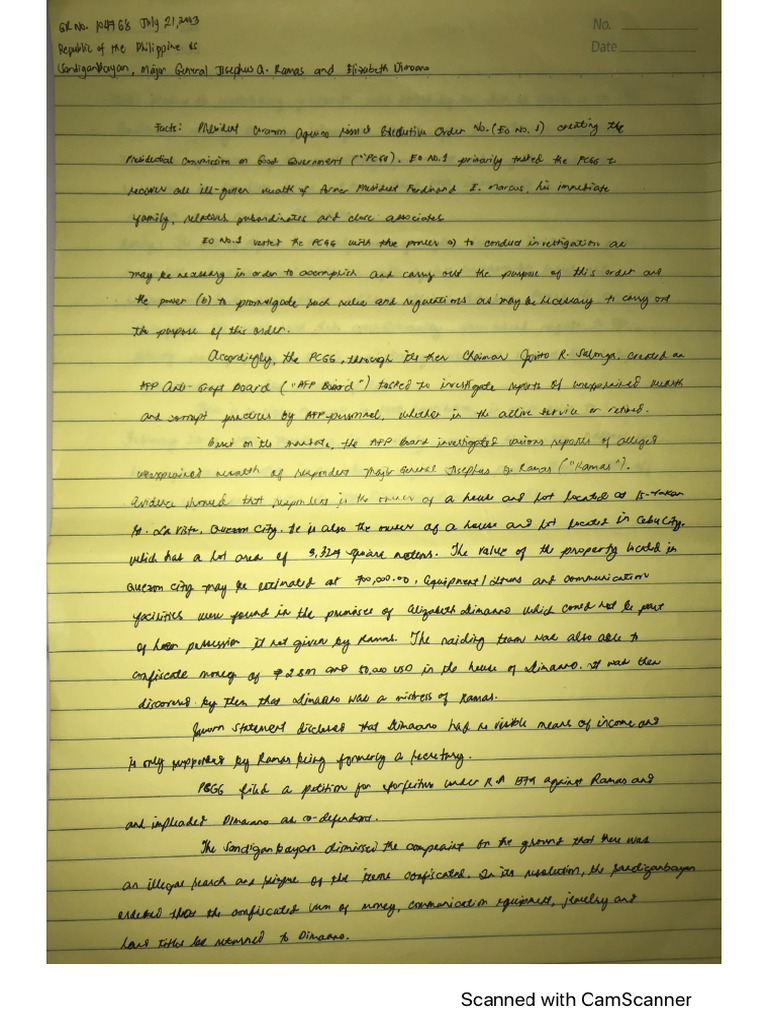 GR No. 104768 July 21, 2003
No.
Republic of the Philippine vs
Date
Sandiganbayan, Major General Josephus Q. Ramas and Elizabeth Dimaano
Facts: President Corazon Aquino issued Executive Order No. (EO No. 1) creating the
Presidential Commission on Good Government ("PCGG). EO No. 1 primarily tasked the PCGG to
recover all ill-gotten wealth of former President Ferdinand E. Marcos, his immediate
family, relatives, subordinates and close associates
EO No. 1 vested the PCGG with the power a) to conduct investigation as
may be necessary in order to accomplish and carry out the purpose of this order and
the power (b) to promulgate such rules and regulations as may be necessary to carry out
the purpose of this order.
Accordingly, the PCGG, through its then Chairman Jovito R. Salonga, created an
AFP Anti-Graft Board ("AFP Board") tasked to investigate reports of unexplained wealth
and corrupt practices by AFP personnel, whether in the active service or retired.
Based on its mandate, the AFP Board investigated various reports of alleged
unexplained wealth of respondent Major General Josephus Q. Ramas ("Ramas").
Evidence showed that respondent is the owner of a house and lot located at 15-Yakan
St. La Vista, Quezon City. He is also the owner of a house and lot located in Cebu City,
which has a lot area of 3,327 square meters. The value of the property located in
Quezon City may be estimated at 700,000.00, Equipment/Items and communication
facilities were found in the premises of Elizabeth Dimaano which could not be part
of possession if not given by Ramas. The raiding team was also able to
confiscate money of ₱ 2.8M and 50,000 USD in the house of Dimaano. It was then
discovered by then that Dimaano was a mistress of Ramas.
Sworn Statement disclosed that Dimaano had no visible means of income and
is only supported by Ramas being formerly a secretary.
PCGG filed a petition for forfeiture under R.A 1379 against Ramas and
and impleaded Dimaano as co-defendant.
The Sandiganbayan dismissed the complaint on the ground that there was
an illegal search and seizure of the items confiscated. In its resolution, the Sandiganbayan
ordered that the confiscated sum of money, communication equipment, jewelry and
land titles be returned to Dimaano.
Scanned with CamScanner